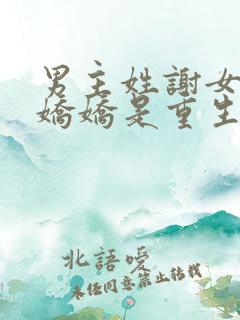 男主姓謝女
嬌嬌是重生
北語嗳
未任同意禁止转载